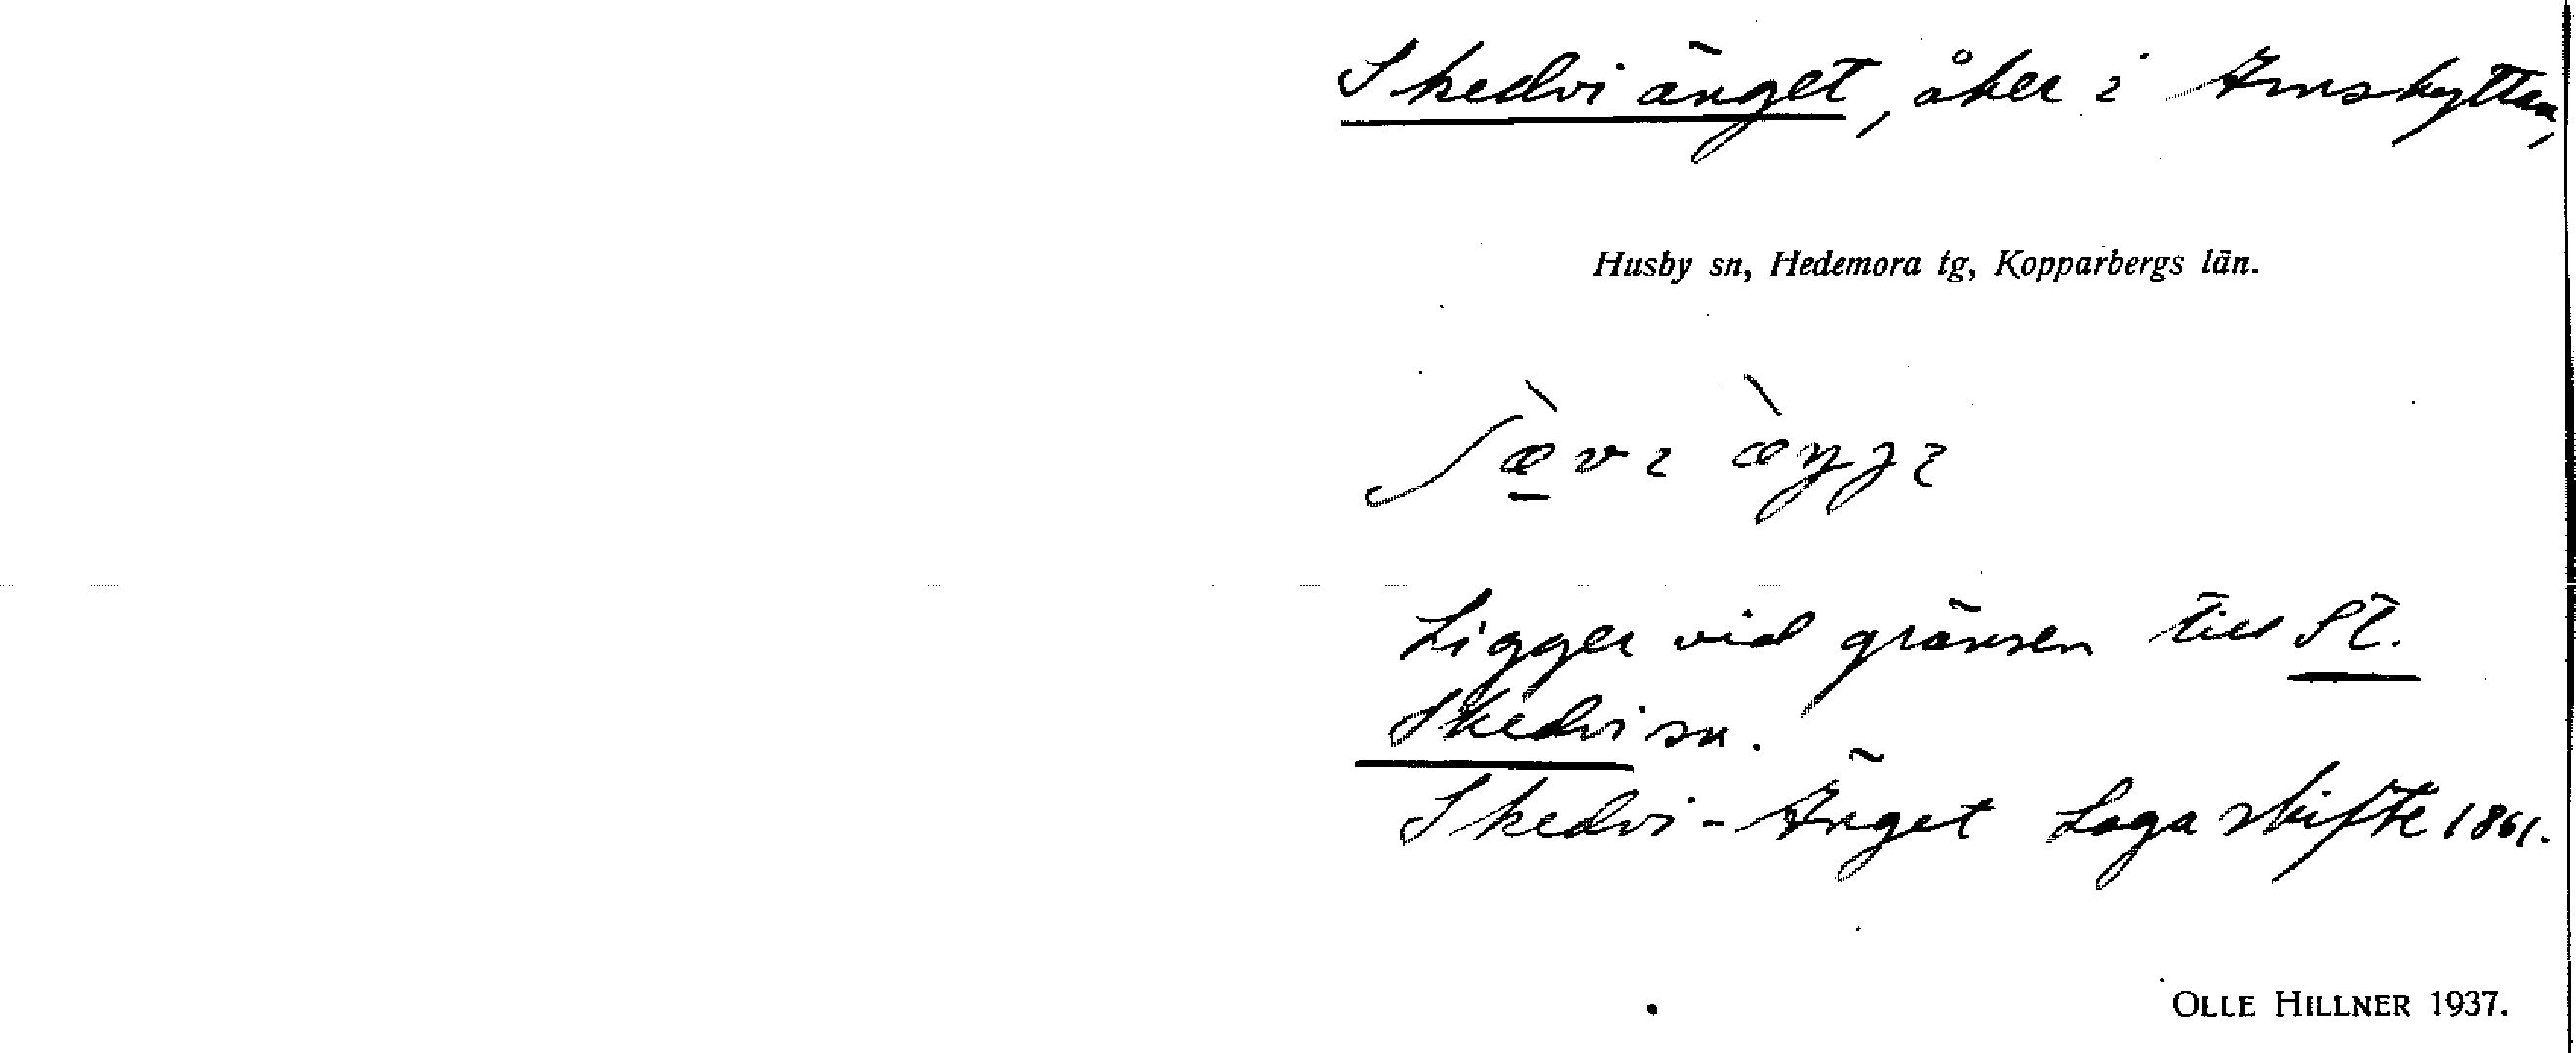 Skedviänget, åker i Amshyttan,
Husby sn, Hedemora tg, Kopparbergs län.
Ligger vid gränsen till St.
Skedvi sn.
Skedvi-Änget Laga skifte 1861.
OLLE HILLNER 1937.